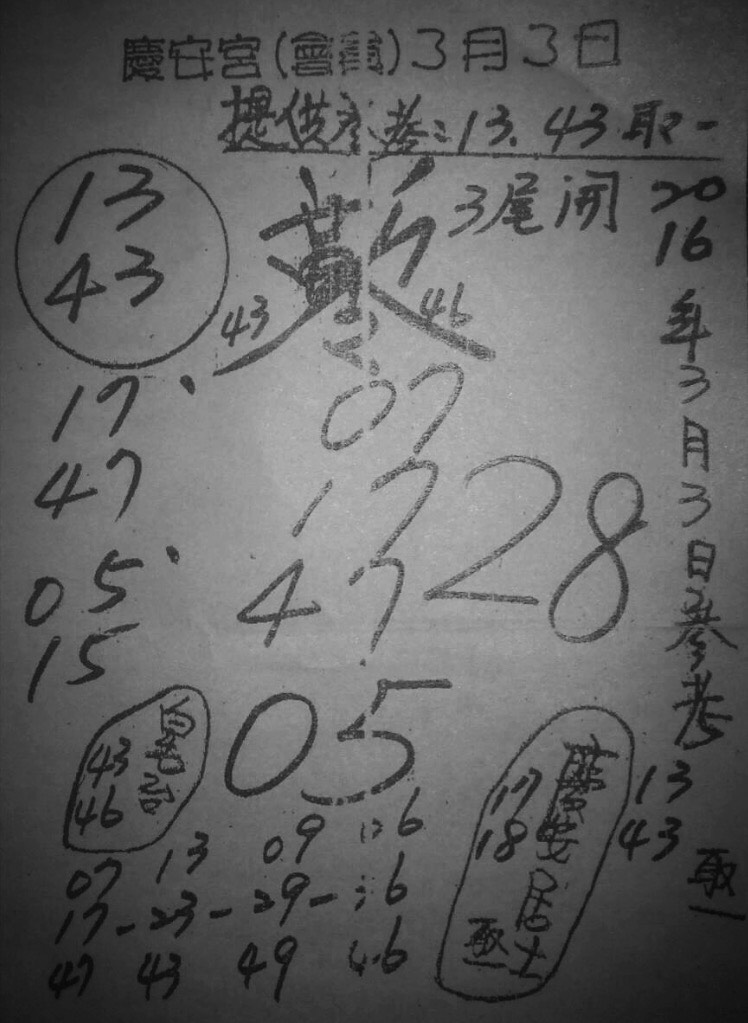 慶安宮(會員)3月3日
提供參考:13.43取一
13
43
3尾開
2016年3月3日參考
43 46
07
17
47
28
05
17
47
05
15
43
46
慶安居士
17
18
取一
13
43
取一
07 13 09
17-23-29-
47 43 49